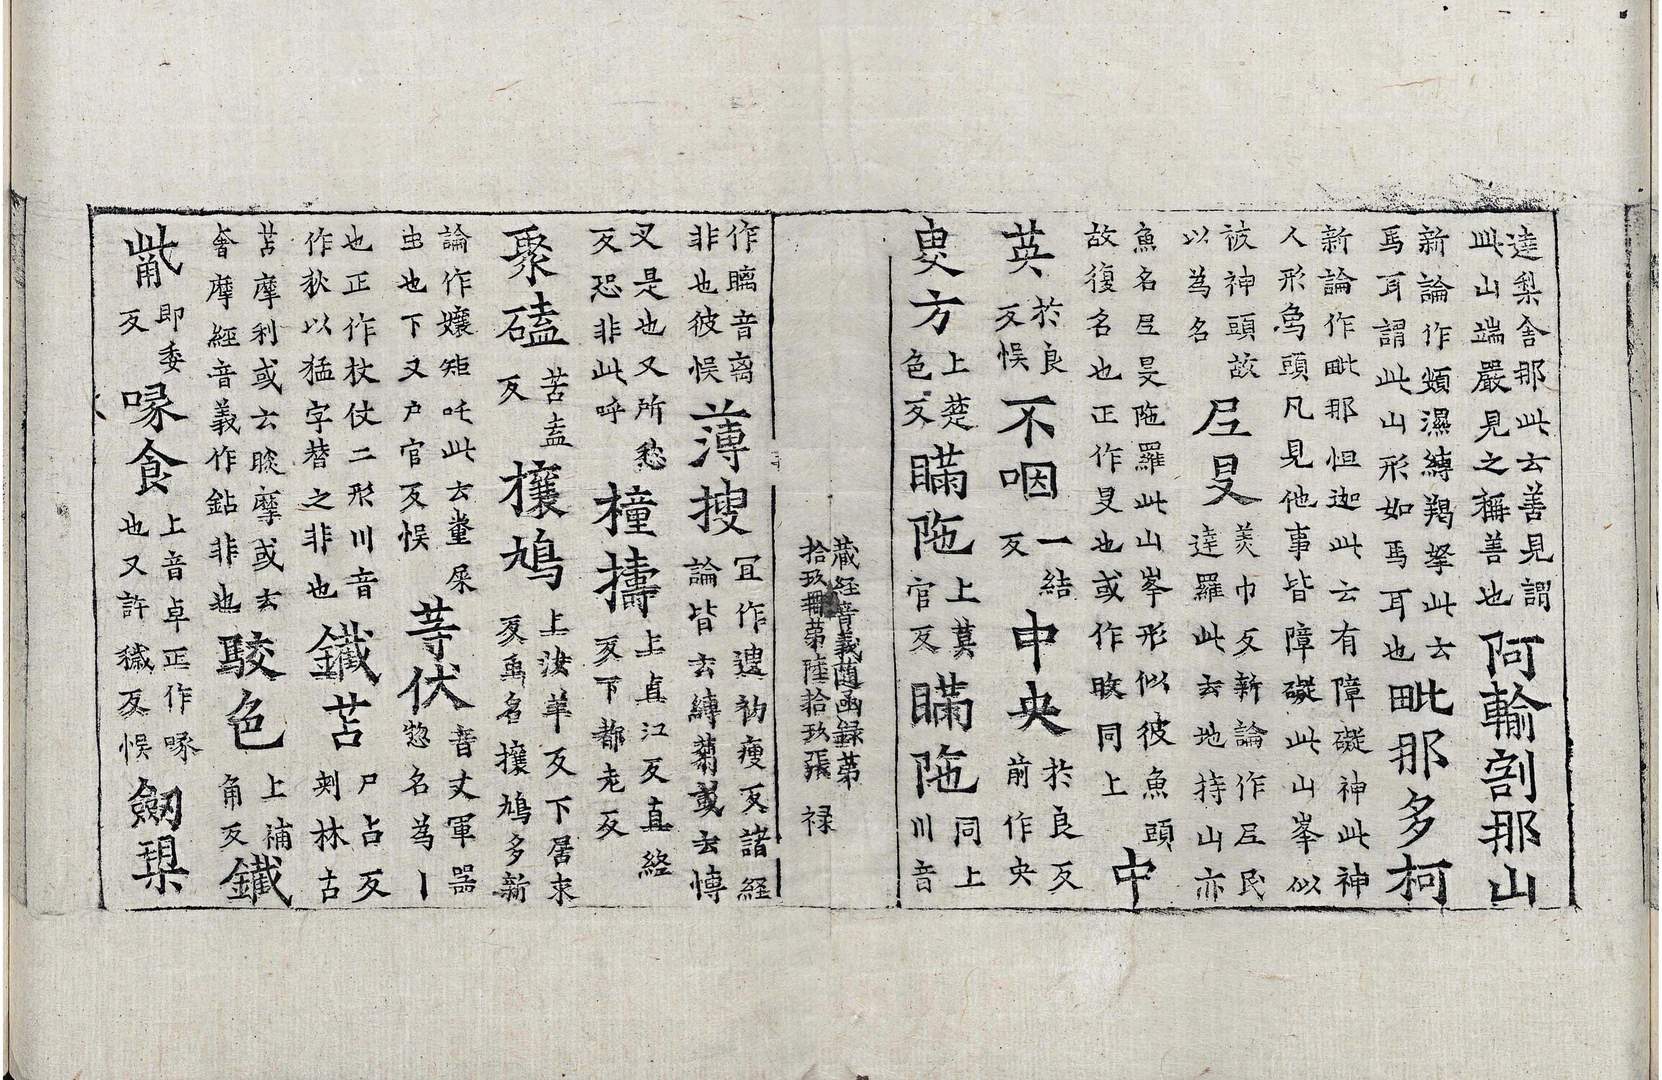 達梨舍那此云善見謂
此山端嚴見之稱善也
阿輸割那山
新論作頞濕縛羯拏此云
馬耳謂此山形如馬耳也
毗那多柯
新論作毗那怛迦此云有障礙神此神
人形為頭凡見他事皆障礙此山峯似
彼神頭故
以為名
𡰱旻
羙巾反新論作𡰱民
達羅此云地持山亦
魚名𡰱旻陁羅此山峯形似彼魚頭
故復名也正作旻也或作旼同上
中
英
於良
反悮
不咽
一結
反
中央
於良反
前作央
㕝方
上楚
色反
瞞陁
上莫
官反
瞞陁
同上
川音
藏経音義随函録第
拾玖冊第陸拾玖張
禄
作𥉻音离
非也彼悮
薄搜
冝作𨗇衲瘦反諸經
論皆云縛蒭或云愽
叉是也又所愁
反恐非此呼
橦擣
上直江反直終
反下都老反
聚磕
苦盍
反
攘鳩
上汝羊反下居求
反禹名攘鳩多新
論作孃矩吒此云糞屎
虫也下又户官反悮
䓁伏
音丈軍器
惣名為丨
也正作杖仗二形川音
作狄以猛字替之非也
鐵苫
尸占反
剡林古
苫摩利或云睒摩或云
奢摩經音義作鉆非也
駮色
上補
角反
鐵
㭰
即委
反
喙食
上音卓正作啄
也又許穢反悮
劒㮈